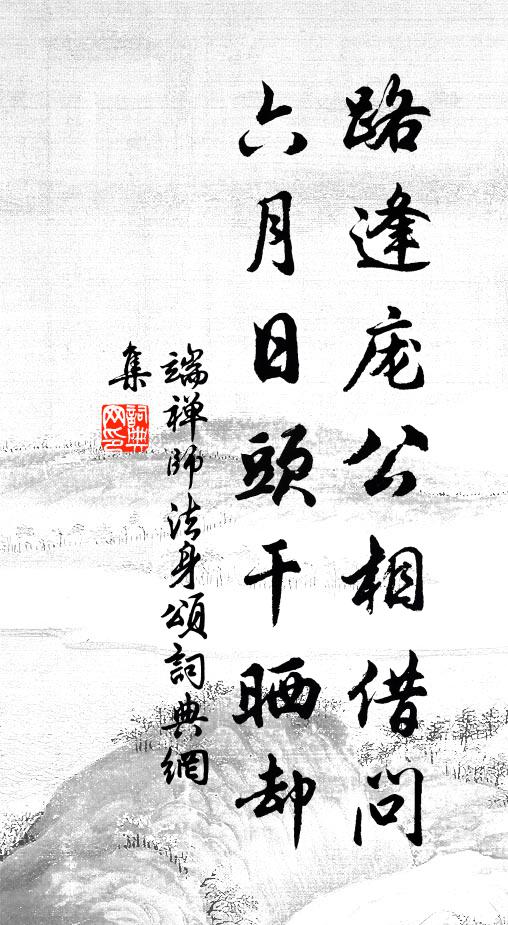 路逢庞公相借问
六月日頭干晒却
端禅師法身頌詞典網
集
詞典
网印